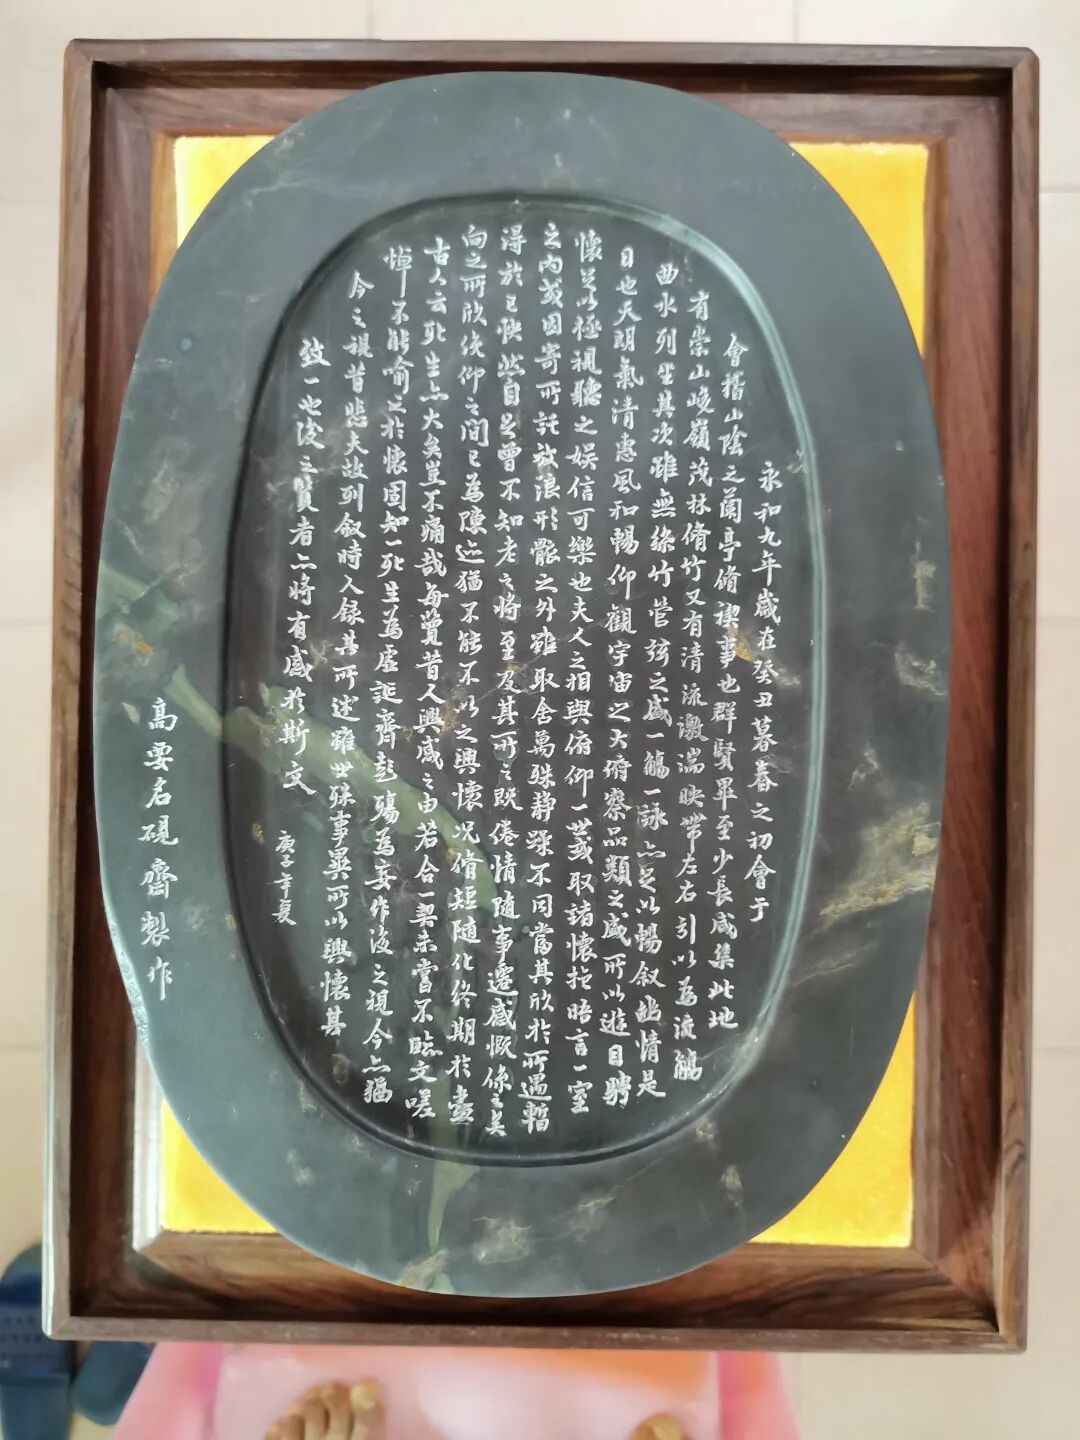 永和九年歲在癸丑暮春之初會于
會稽山陰之蘭亭脩禊事也群賢畢至少長咸集此地
有崇山峻嶺茂林脩竹又有清流激湍映帶左右引以為流觴
曲水列坐其次雖無絲竹管弦之盛一觴一詠亦足以暢叙幽情是
日也天朗氣清惠風和暢仰觀宇宙之大俯察品類之盛所以遊目騁
懷足以極視聽之娛信可樂也夫人之相與俯仰一世或取諸懷抱晤言一室
之內或因寄所託放浪形骸之外雖取舍萬殊靜躁不同當其欣於所遇暫
得於己快然自足曾不知老之將至及其所之既倦情隨事遷感慨係之矣
向之所欣俛仰之間已為陳迹猶不能不以之興懷況脩短隨化終期於盡
古人云死生亦大矣豈不痛哉每覽昔人興感之由若合一契未嘗不臨文嗟
悼不能喻之於懷固知一死生為虛誕齊彭殤為妄作後之視今亦猶
今之視昔悲夫故列叙時人錄其所述雖世殊事異所以興懷其
致一也後之覽者亦將有感於斯文
庚子年夏
高要名硯齋製作